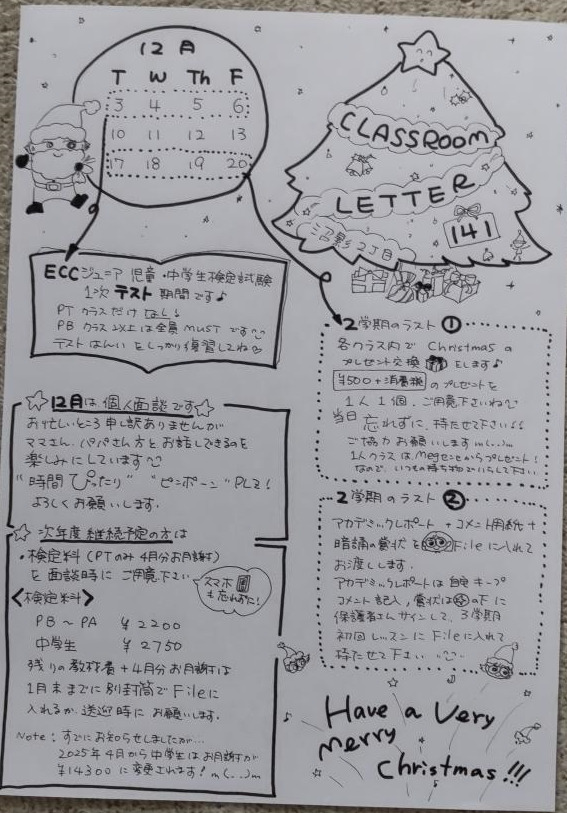 12月
T W Th F
3 4 5 6
10 11 12 13
17 18 19 20
CLASSROOM
LETTER
141
沼影2丁目
ECCジュニア 児童・中学生検定試験
1次 テスト 期間です♪
PTクラスだけ なし!
PB クラス以上は全員 MUST です
テストはんいをしっかり復習してね
☆12月は、個人面談です☆
お忙しいところ申し訳ありませんが
ママさん、パパさん方とお話しできるのを
楽しみにしています
"時間ぴったり" "ピンポーン" PLZ!
よろしくお願いします.
☆ 次年度 継続予定の方は
・検定料 (PTのみ 4月分お月謝)
を 面談時に ご用意下さい
スマホ
も忘れずに!
<検定料>
PB ~ PA ¥2200
中学生 ¥2750
残りの教材費+4月分お月謝は
1月末までに別封筒でFileに
入れるか、送迎時にお願いします.
Note: すでにお知らせしましたが…
2025年4月から中学生はお月謝が
¥14300 に変更されます! m(...)m
2学期のラスト ①
各クラス内で Christmas の
プレゼント交換 をします♪
¥500+消費税 のプレゼントを
1人1個、ご用意下さいね
当日 忘れずに、持たせて下さい!!
ご協力お願いします m(...)m
1人クラスは Megセンセからプレゼント!
なので、いつもの持ち物でいらして下さい
2学期のラスト ②
アカデミックレポート + コメント用紙 +
暗誦の賞状を Fileに入れて
お渡しします.
アカデミックレポートは 自宅キープ
コメント記入、賞状は の下に
保護者さんサインして、3学期
初回レッスンに Fileに入れて
持たせて下さい
Have a Very
Merry
Christmas!!!